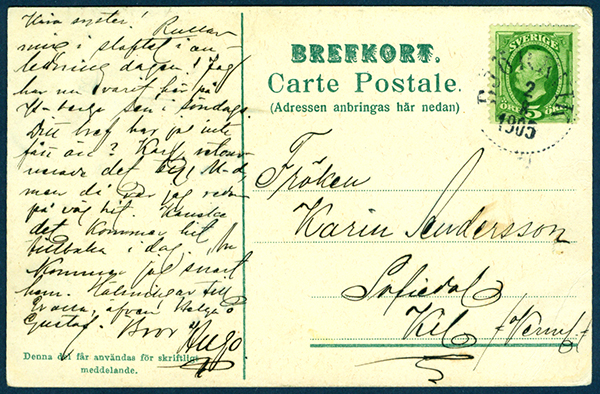 Kära syster!
ning i slaftag i an-
ledning dagen! Jag
har nu varit här på
sen i söndags.
Ditt bref har jag inte
fått än? Karl
det
man då jag redan
på väg hit. Kanske
det kommer hit
tillbaka i dag. Nu
kommer jag snart
hem. Hälsningar till
Gustaf. Bror Hugo.
Denna del får användas för skriftligt
meddelande.
BREFKORT.
Carte Postale.
(Adressen anbringas här nedan)
SVERIGE
5
ÖRE
2
1905
Fröken
Karin Andersson
Sofiedal
Kil